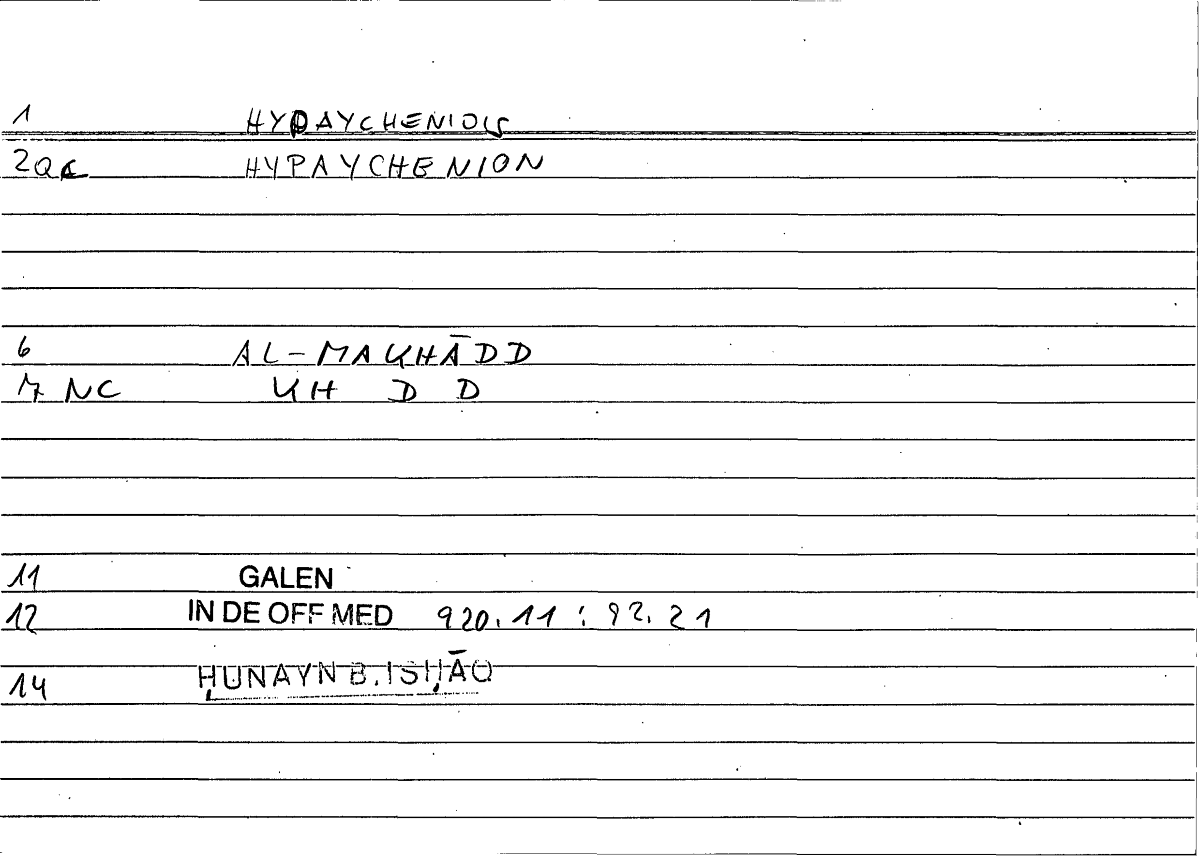 1 HYPAYCHENIOIS
2QC HYPAYCHENION
6 AL-MAKHĀDD
7 NC KH D D
11 GALEN
12 IN DE OFF MED 920.11 : 92.21
14 ḤUNAYN B. ISḤĀQ